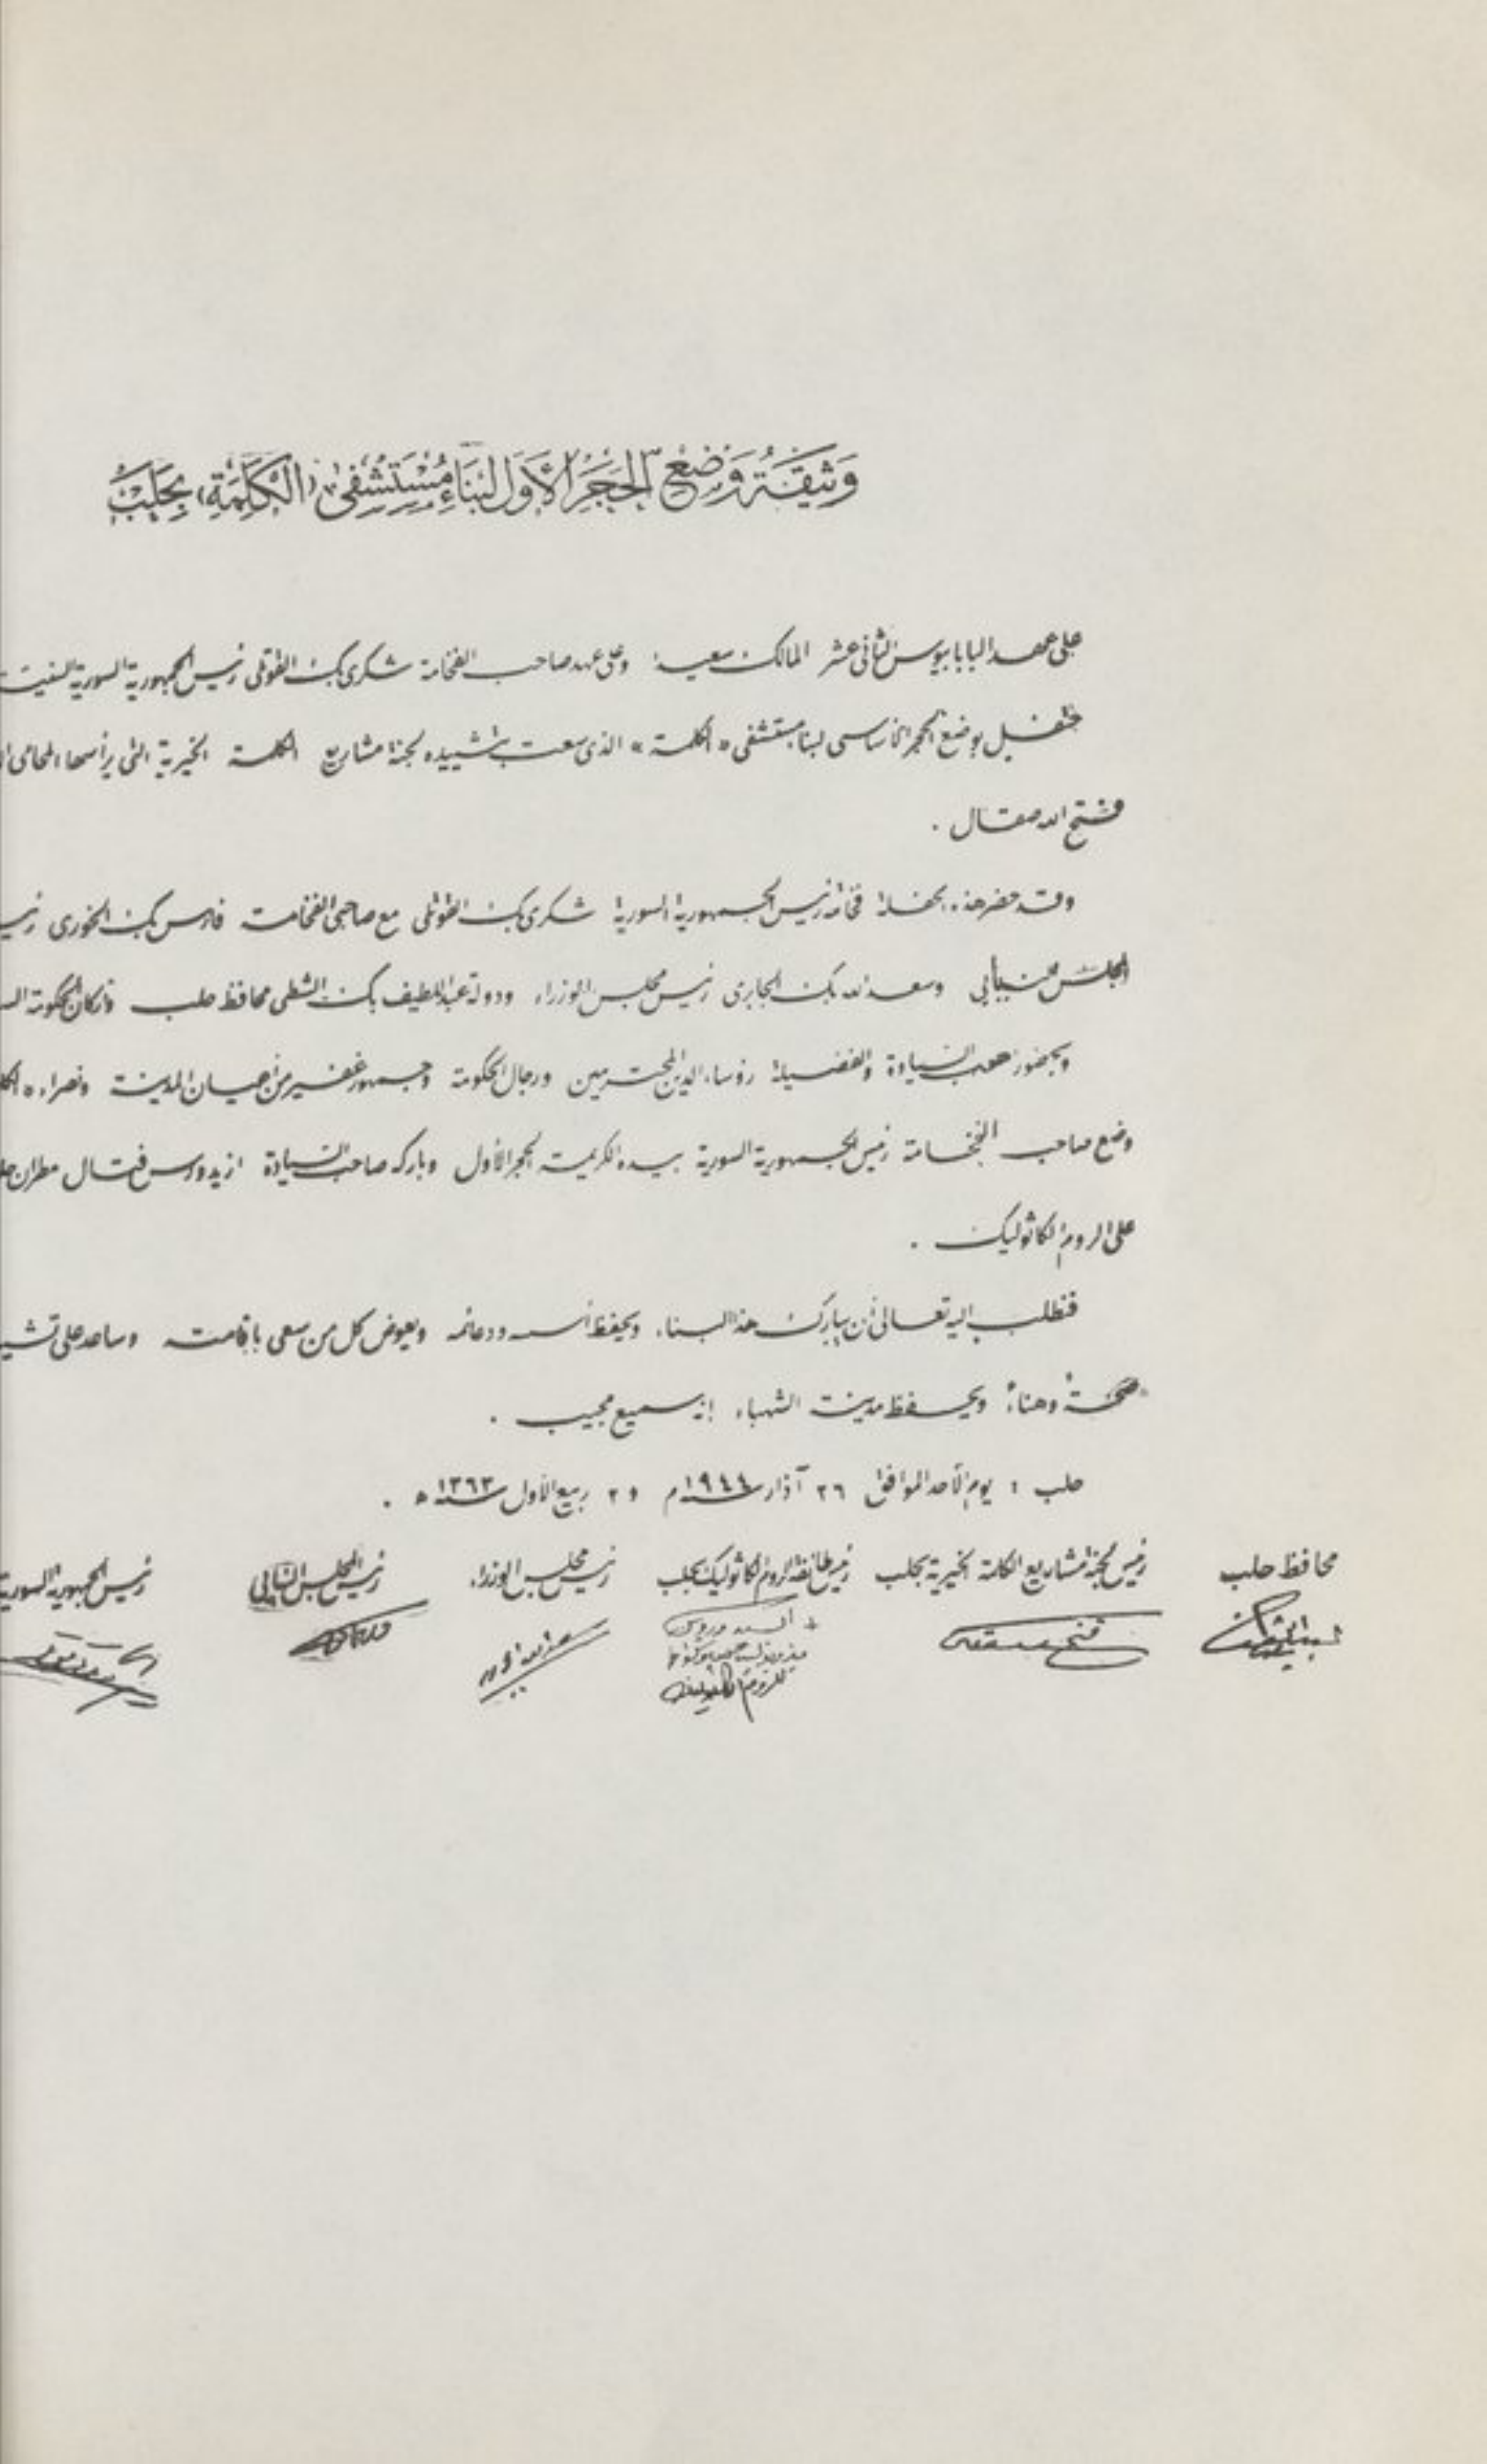 وَثِيقَةُ وَضْعِ الحَجَرِ الأَوَّلِ لِبِنَاءِ مُسْتَشْفَى «الكَلِمَةِ» بِحَلَبَ
على عهد البابا بيوس الثاني عشر المالك سعيداً وعلى عهد صاحب الفخامة شكري بك القوتلي رئيس الجمهورية السورية
احتفل بوضع الحجر الأساسي لبناء مستشفى «الكلمة» الذي سعت بتشييده لجنة مشاريع الكلمة الخيرية التي يرأسها المحامي
فتح الله صقال .
وقد حضر هذه الحفلة فخامة رئيس الجمهورية السورية شكري بك القوتلي مع صاحبي الفخامة فارس بك الخوري
المجلس النيابي وسعد الله بك الجابري رئيس مجلس الوزراء ودولة عبد اللطيف بك الشطي محافظ حلب وأركان الحكومة
وبحضور أصحاب السيادة والفضيلة رؤساء الدين المحترمين ورجال الحكومة وجمهور غفير من أعيان المدينة ونصراء
وضع صاحب الفخامة رئيس الجمهورية السورية بيده الكريمة الحجر الأول وباركه صاحب السيادة ازيدورس فتال مطران
على الروم الكاثوليك .
فنطلب اليه تعالى أن يبارك هذا البناء ويحفظ أسسه ودعائمه ويعوض كل من سعى بإقامته وساعد على
صحةً وهناءً ويحفظ مدينة الشهباء إنه سميع مجيب .
حلب : يوم الأحد الموافق ٢٦ آذار سنة ١٩٤٤ م و ٢ ربيع الأول سنة ١٣٦٣ ه .
محافظ حلب رئيس لجنة مشاريع الكلمة الخيرية بحلب رئيس طائفة الروم الكاثوليك بحلب رئيس مجلس الوزراء رئيس المجلس النيابي رئيس الجمهورية السورية